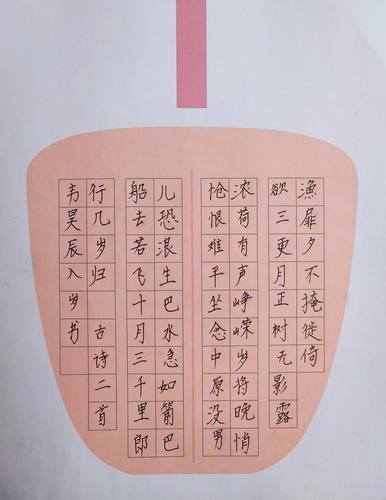 漁扉夕不掩徙倚
欲三更月正树无影露
浓荷有声峥嵘岁将晚悄
怆恨难平坐念中原没男
儿恐浪生巴水急如箭巴
船去若飞十月三千里郎
行几岁归 古诗二首
韦昊辰八岁书